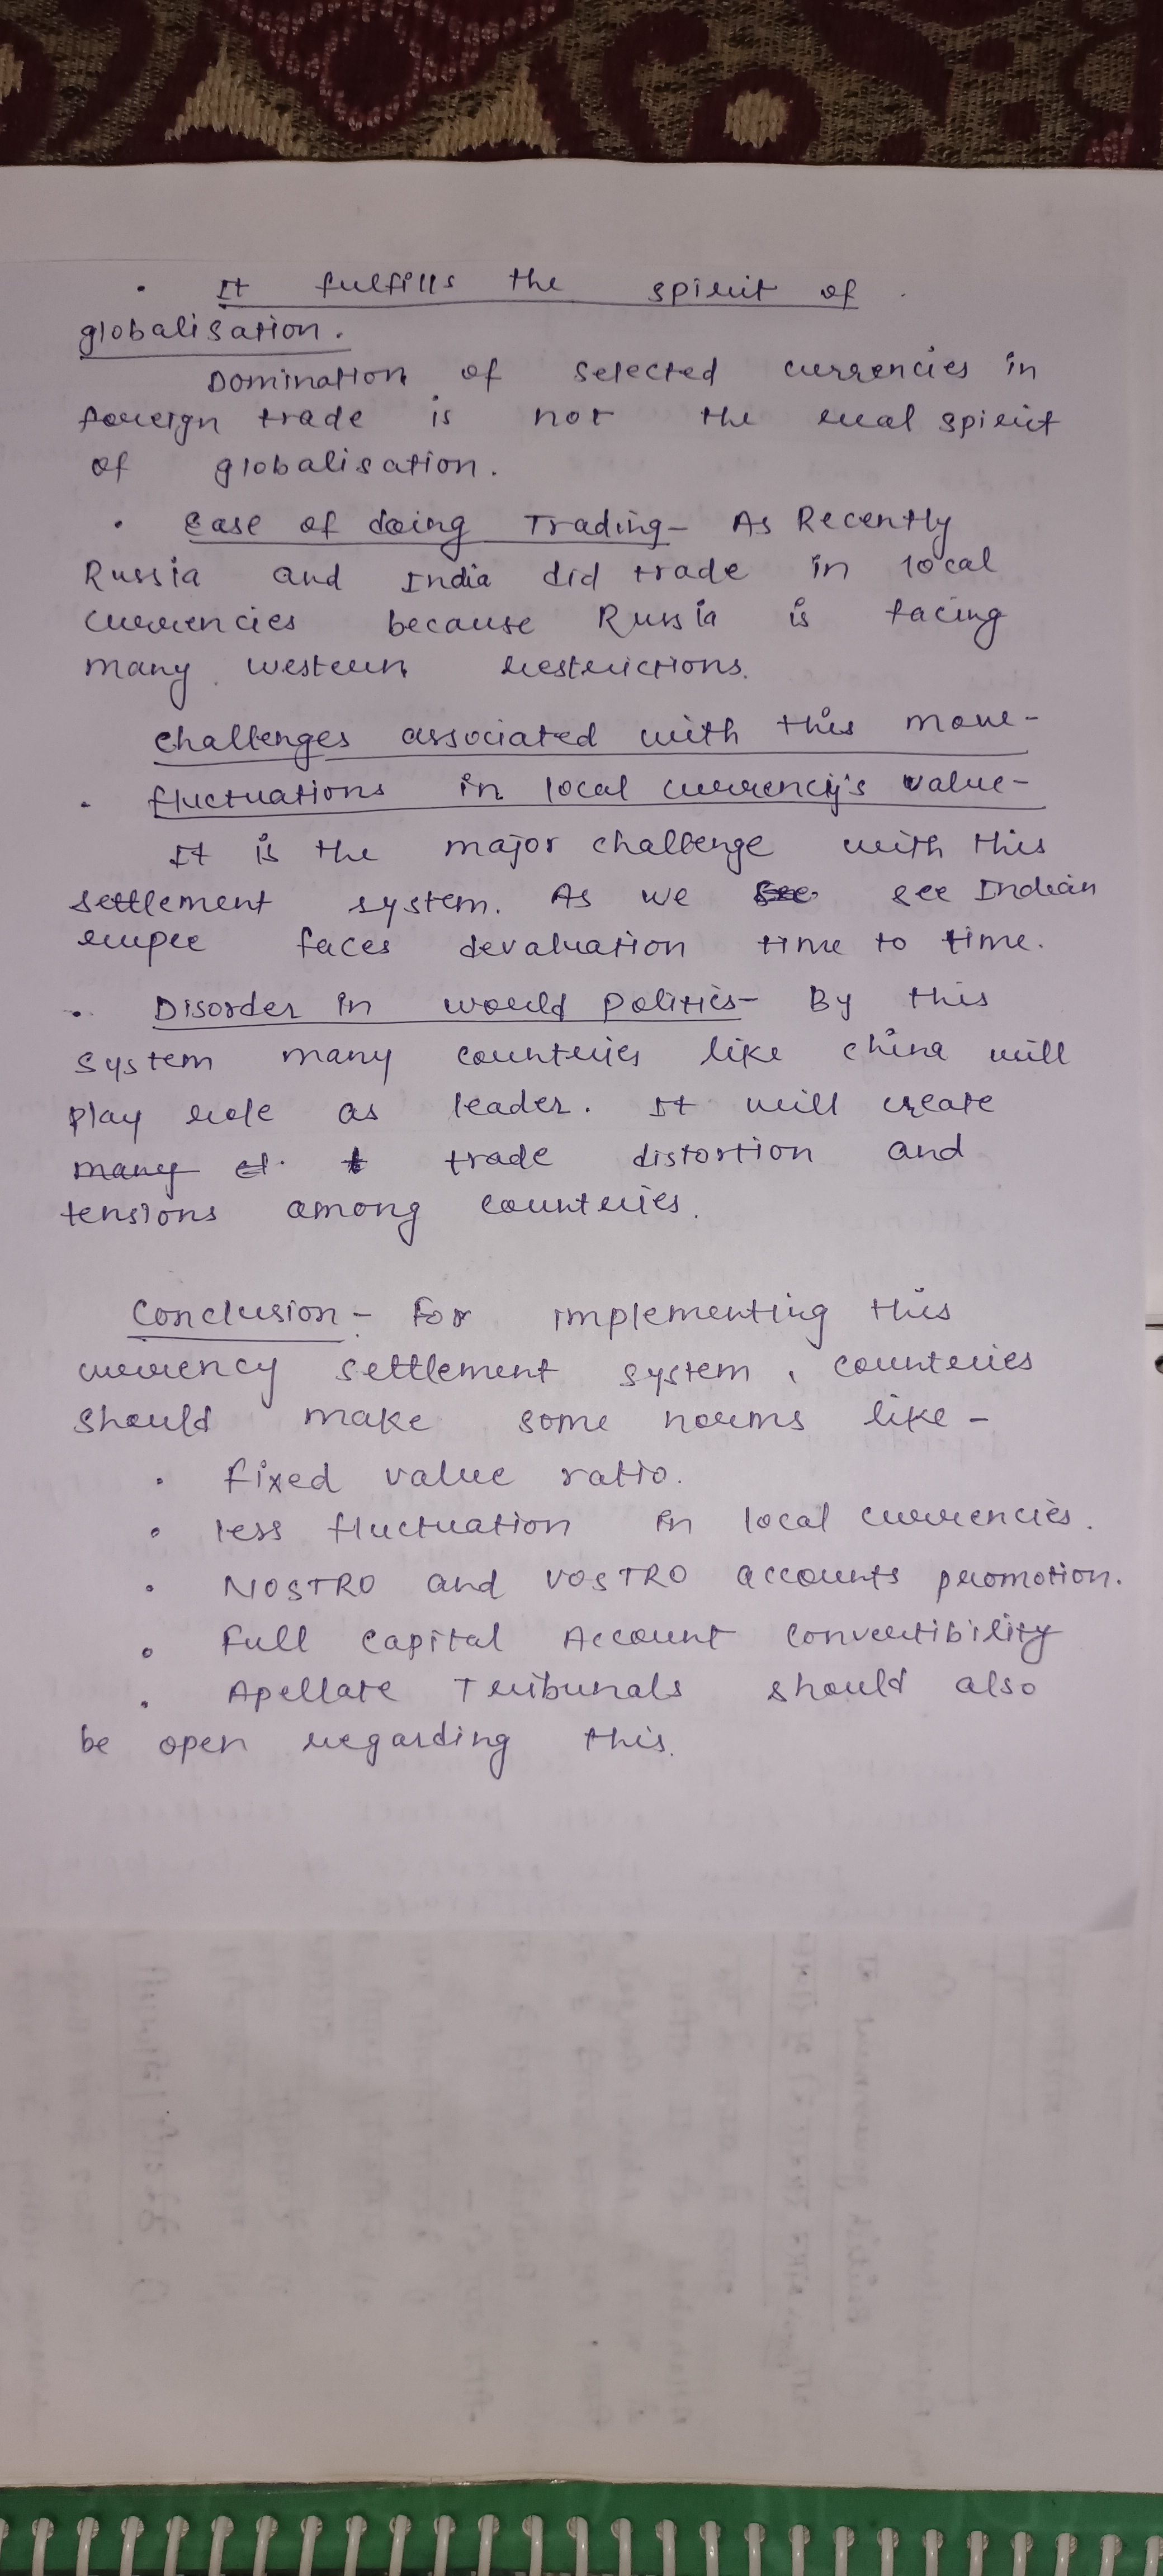 • It fulfills the spirit of
globalisation.
Domination of selected currencies in
foreign trade is not the real spirit
of globalisation.
• Ease of doing Trading- As Recently
Russia and India did trade in local
currencies because Russia is facing
many western restrictions.
Challenges associated with this move-
• fluctuations in local currency's value-
It is the major challenge with this
settlement system. As we see see Indian
rupee faces devaluation time to time.
• Disorder in world politics- By this
system many countries like china will
play role as leader. It will create
many trade distortion and
tensions among countries.
Conclusion- For implementing this
currency settlement system, countries
should make some norms like-
• fixed value ratio.
• less fluctuation in local currencies.
• NOSTRO and VOSTRO accounts promotion.
• Full Capital Account Convertibility
• Apellate Tribunals should also
be open regarding this.